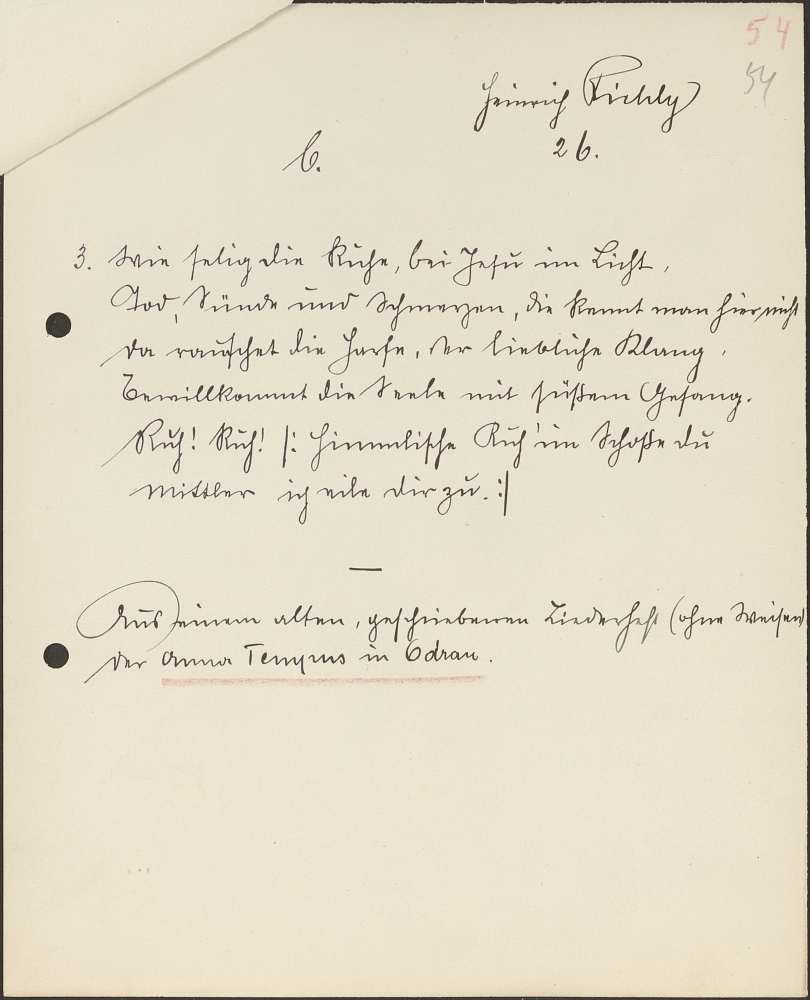 54
54
Heinrich
26.
6.
3. Wie selig die Ruhe, bei Jesu im Licht,
Tod, Sünde und Schmerzen, die kennt man hier nicht
Da rauschet die Harfe, der liebliche Klang,
Bewillkommt die Seele mit süßem Gesang.
Ruh! Ruh! |: Himmlische Ruh' im Schoße du
Mittler ich eile dir zu. :|
Aus einem alten, geschriebenen Liederheft (ohne Weisen)
der Anna in Odrau.